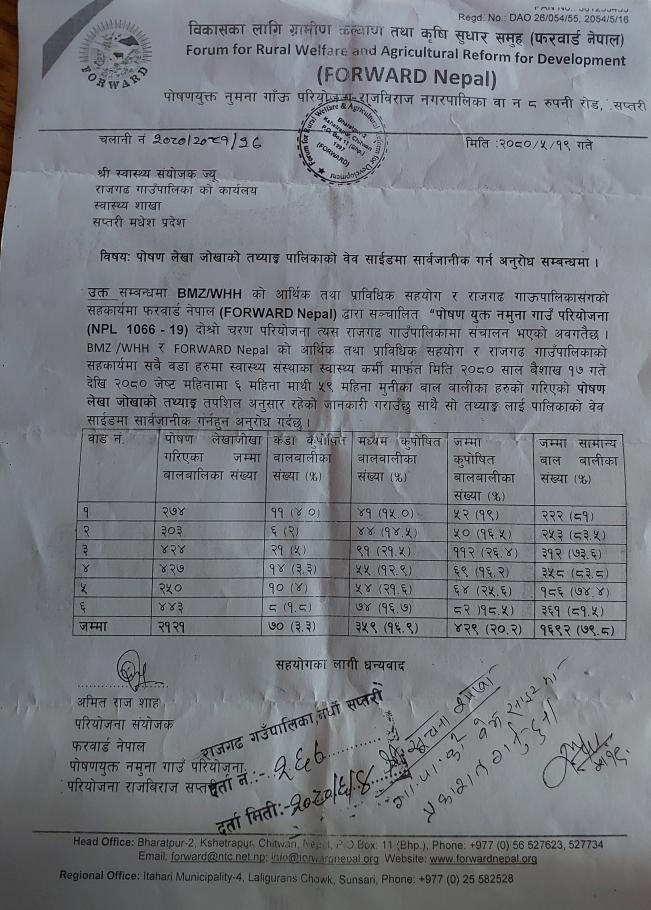 Regd. No.: DAO 26/054/55, 2054/5/16
विकासका लागि ग्रामीण कल्याण तथा कृषि सुधार समुह (फरवार्ड नेपाल)
Forum for Rural Welfare and Agricultural Reform for Development
(FORWARD Nepal)
FORWARD
पोषणयुक्त नुमना गाँऊ परियोजना-राजविराज नगरपालिका वा न ८ रुपनी रोड, सप्तरी
चलानी नं २०८०/२०८१/१६
मिति :२०८०/५/१९ गते
श्री स्वास्थ्य संयोजक ज्यू
राजगढ गाउँपालिका को कार्यलय
स्वास्थ्य शाखा
सप्तरी मधेश प्रदेश
विषय: पोषण लेखा जोखाको तथ्याङ्क पालिकाको वेव साईडमा सार्वजानीक गर्न अनुरोध सम्बन्धमा ।
उक्त सम्बन्धमा BMZ/WHH को आर्थिक तथा प्राविधिक सहयोग र राजगढ गाऊपालिकासंगको
सहकार्यमा फरवार्ड नेपाल (FORWARD Nepal) द्वारा सञ्चालित "पोषण युक्त नमुना गाउँ परियोजना
(NPL 1066 - 19) दोश्रो चरण परियोजना त्यस राजगढ गाउँपालिकामा संचालन भएको अवगतैछ ।
BMZ /WHH र FORWARD Nepal को आर्थिक तथा प्राविधिक सहयोग र राजगढ गाउँपालिकाको
सहकार्यमा सबै वडा हरुमा स्वास्थ्य संस्थाका स्वास्थ्य कर्मी मार्फत मिति २०८० साल बैशाख १७ गते
देखि २०८० जेष्ट महिनामा ६ महिना माथी ५९ महिना मुनीका बाल बालीका हरुको गरिएको पोषण
लेखा जोखाको तथ्याङ्क तपशिल अनुसार रहेको जानकारी गराउँछु साथै सो तथ्याङ्क लाई पालिकाको वेव
साईडमा सार्वजनीक गर्नहुन अनुरोध गर्दछु ।
वाड नं. पोषण लेखाजोखा गरिएका जम्मा बालबालिका संख्या कडा कुपोषित बालबालीका संख्या (%) मध्यम कुपोषित बालबालीका संख्या (%) जम्मा कुपोषित बालबालीका संख्या (%) जम्मा सामान्य बाल बालीका संख्या (%)
१ २७४ ११ (४.०) ४१ (१५.०) ५२ (१९) २२२ (८१)
२ ३०३ ६ (२) ४४ (१४.५) ५० (१६.५) २५३ (८३.५)
३ ४२४ २१ (५) ९१ (२१.५) ११२ (२६.४) ३१२ (७३.६)
४ ४२७ १४ (३.३) ५५ (१२.९) ६९ (१६.२) ३५८ (८३.८)
५ २५० १० (४) ५४ (२१.६) ६४ (२५.६) १८६ (७४.४)
६ ४४३ ८ (१.८) ७४ (१६.७) ८२ (१८.५) ३६१ (८१.५)
जम्मा २१२१ ७० (३.३) ३५९ (१६.९) ४२९ (२०.२) १६९२ (७९.८)
सहयोगका लागी धन्यवाद
अमित राज शाह
परियोजना संयोजक
फरवार्ड नेपाल
पोषणयुक्त नमुना गाउँ परियोजना
परियोजना राजविराज सप्तरी
राजगढ गउँपालिका,नर्घो सप्तरी
दर्ता नं:- २६७
दर्ता मिती:-२०८०/६/४
Head Office: Bharatpur-2, Kshetrapur, Chitwan, Nepal, P.O.Box: 11 (Bhp.), Phone: +977 (0) 56 527623, 527734
Email: forward@ntc.net.np; info@forwardnepal.org Website: www.forwardnepal.org
Regional Office: Itahari Municipality-4, Laligurans Chowk, Sunsari, Phone: +977 (0) 25 582528